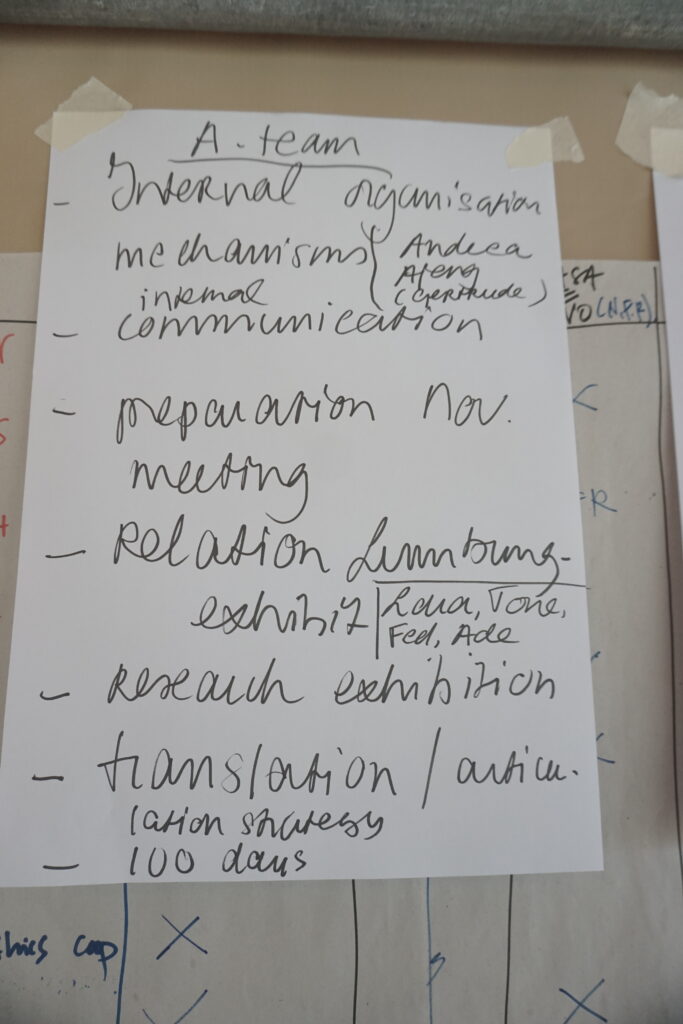 A. team
- Internal organisation
mechanisms ( Andrea
Ateng
(Gertrude)
internal
- communication
- preparation nov.
meeting
- Relation Lumbung-
exhibit | Lara, Tone,
Fed, Ade
- Research exhibition
- translation / articu-
lation strategy
- 100 days
SA
(N.P.R)
=R
cup